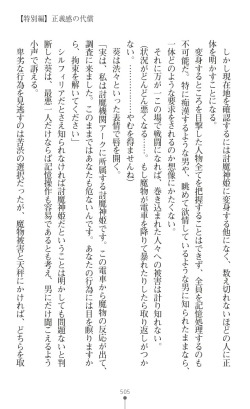 【特別編】正義感の代償
しかし現在地を確認するには討魔神姫に変身する他になく、数え切れないほどの人に正
体を明かすことになる。
変身するところを目撃した人物を全てを捕捉されず、全員を記憶処理するのも
不可能だ。特に痴漢するような男や、眺めて欲情しているような男に知られたままなら、
一体どのような要求をされるのか想像にかたくない。
それに万が一この場で戦闘になれば、巻き込まれた人々への被害は計り知れない。
（状況がどんどん悪くなる……。もし魔物が電車を降りて暴れたりしたら取り返しがつか
ない。…………やむを得ませんね）
葵は渋々といった表情で唇を開く。
「実は、私は討魔機関アークに所属する討魔神姫です。この電車から魔物の反応が出て、
調査に来ました。このままではあなたも危ないんです。あなたの行為には目を瞑りますか
ら、拘束を解いてください」
シルフィリアだとさえ知られなければ討魔神姫だということは明かしても問題ないと判
断した葵は、最悪一人だけならば記憶操作も容易であるとも考え、男にだけ聞こえるよう
小声で訴える。
卑劣な行為を見逃すのは苦渋の選択だったが、魔物被害と天秤にかければ、どちらを取
505